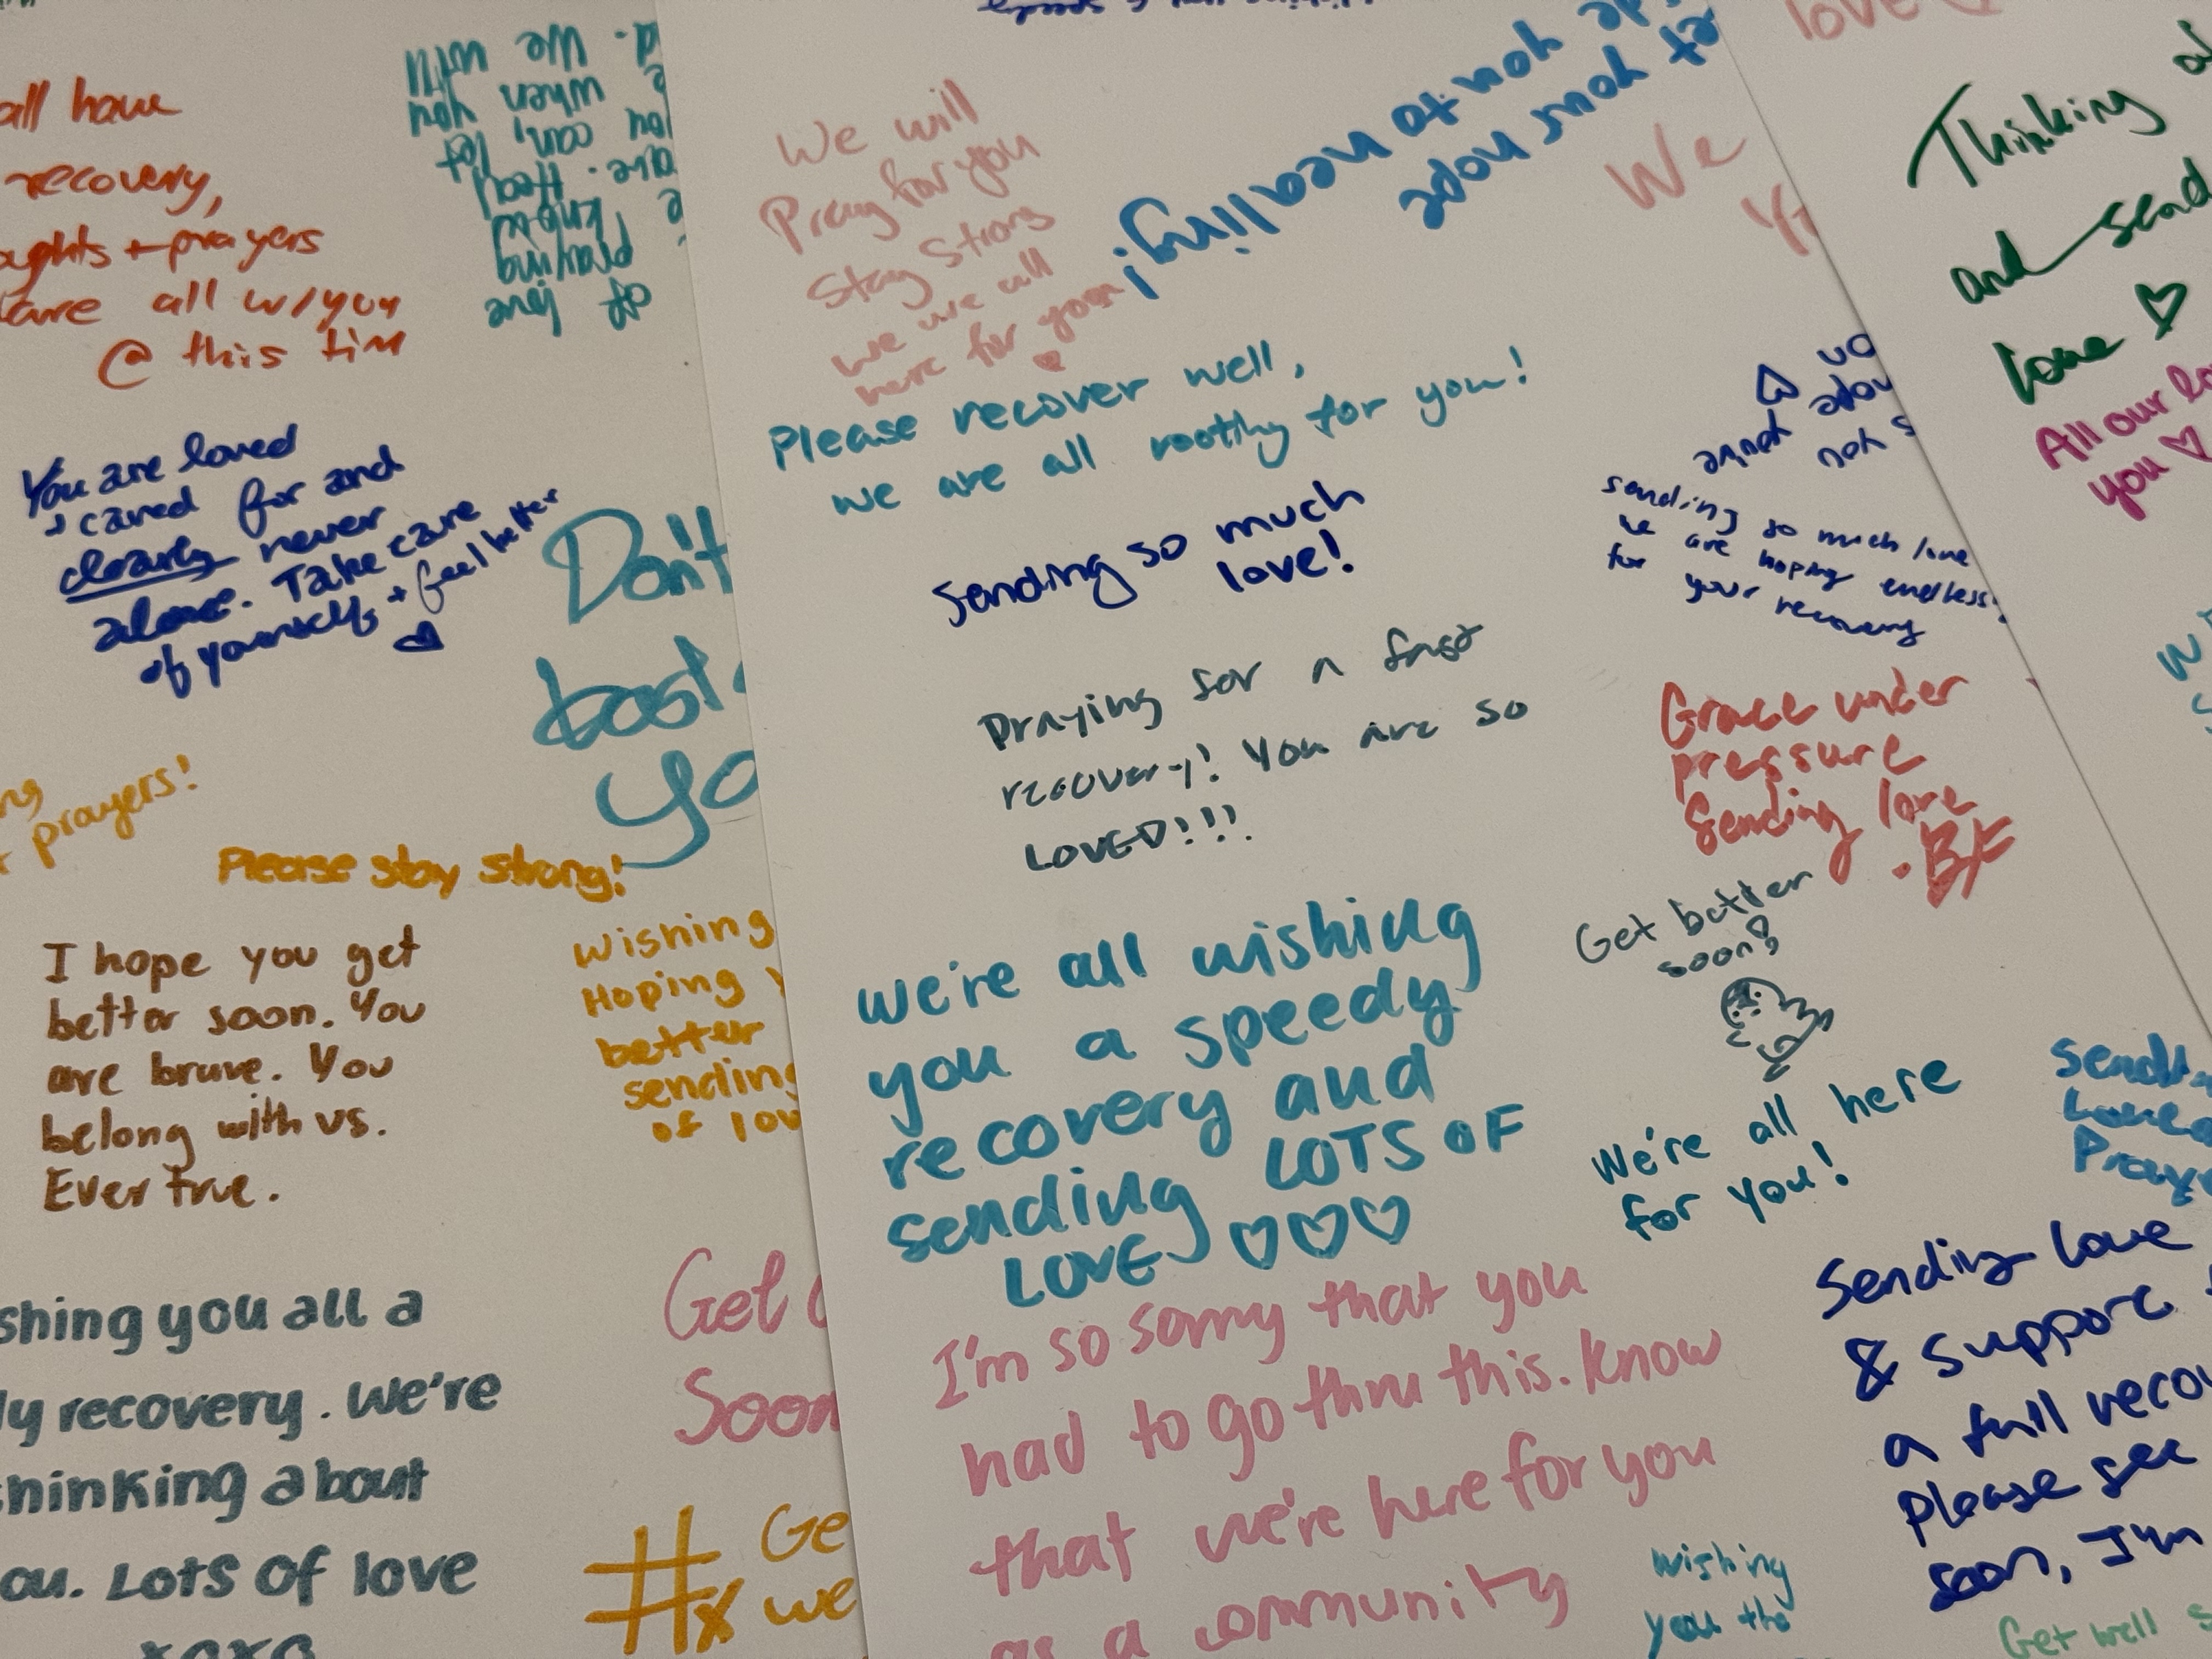 all have
recovery,
ughts + prayers
are all w/you
@ this tim
of love
praying
know
are. Heal
can't let
when you
We will
You are loved
+ cared for and
clearly never
alone. Take care
of yourself + feel better
Don't
yo
prayers!
Please stay strong!
I hope you get
better soon. You
are brave. You
belong with us.
Ever true.
Wishing
Hoping y
better
sending
of lov
shing you all a
ly recovery. We're
hinking about
ou. Lots of love
xoxo
Get
Soon
# Ge
we
We will
Pray for you
Stay Strong
we are all
here for you
you to healing!
et your hope
Please recover well,
we are all rooting for you!
Sending so much
love!
Praying for a fast
recovery! You are so
LOVED!!!
We're all wishing
you a speedy
recovery and
sending LOTS OF
LOVE
I'm so sorry that you
had to go thru this. Know
that we're here for you
as a community
We
sending so much love
we are hoping endless
for your recovery
Grace under
pressure
Sending love
Get better
soon!
We're all here
for you!
wishing
you the
love
Thinking
and send
love
All our lo
you
Sendi
Love
Pray
Sending love
& support
a full recov
Please see
soon, I'm
Get well s